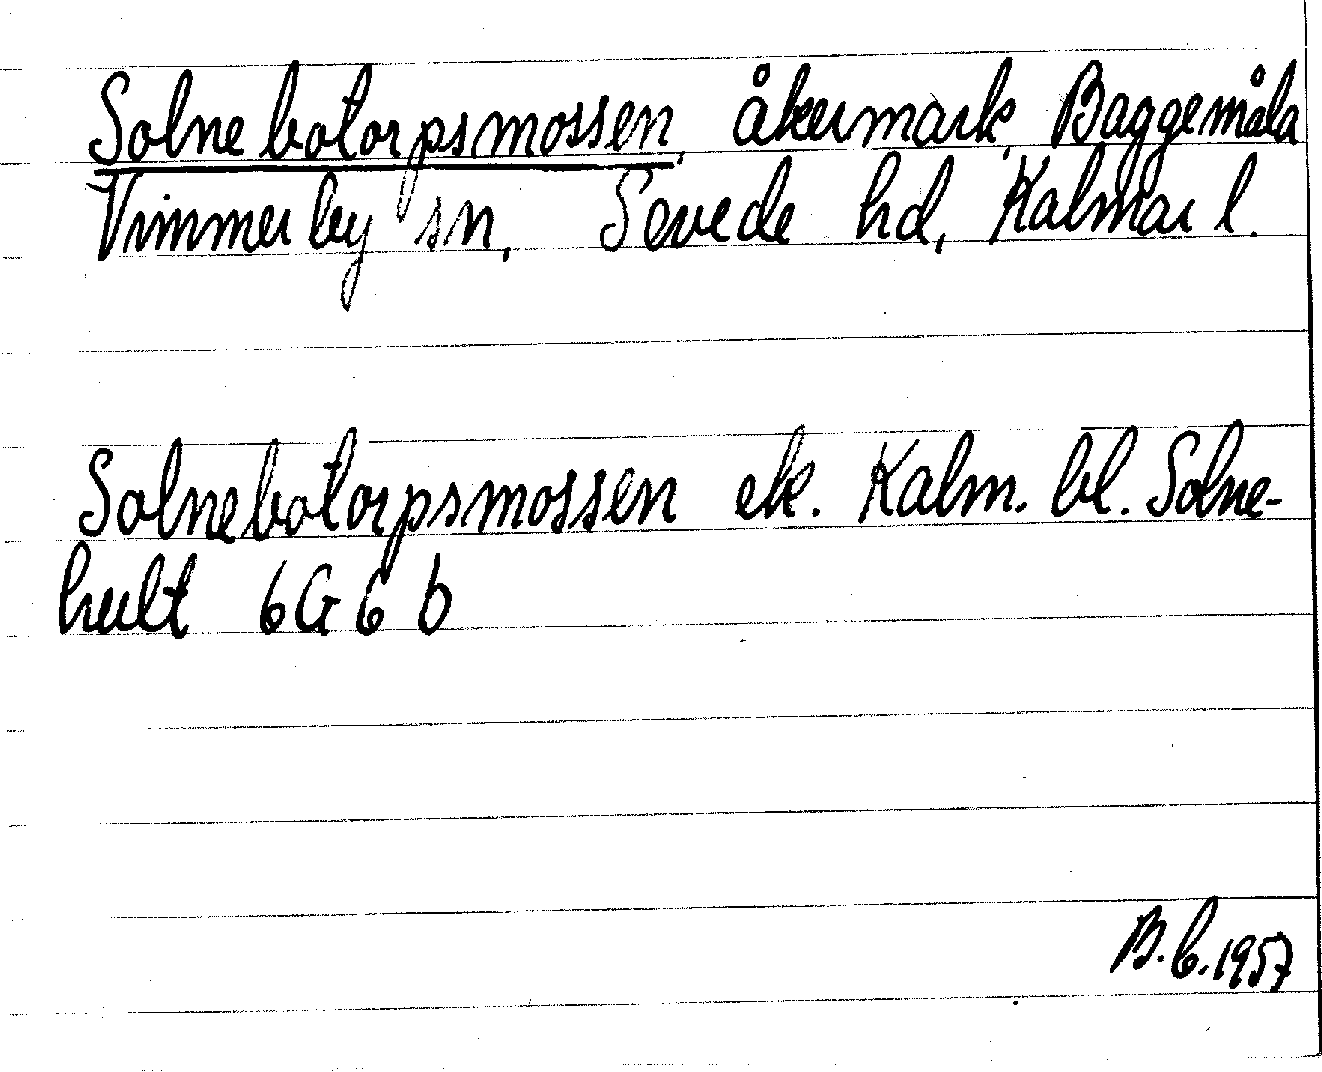 Solnebotorpsmossen, åkermark, Baggemåla
Vimmerby sn, Sevede hd, Kalmar l.
Solnebotorpsmossen ek. Kalm. bl. Solne-
hult 6G6b
B.b.1957